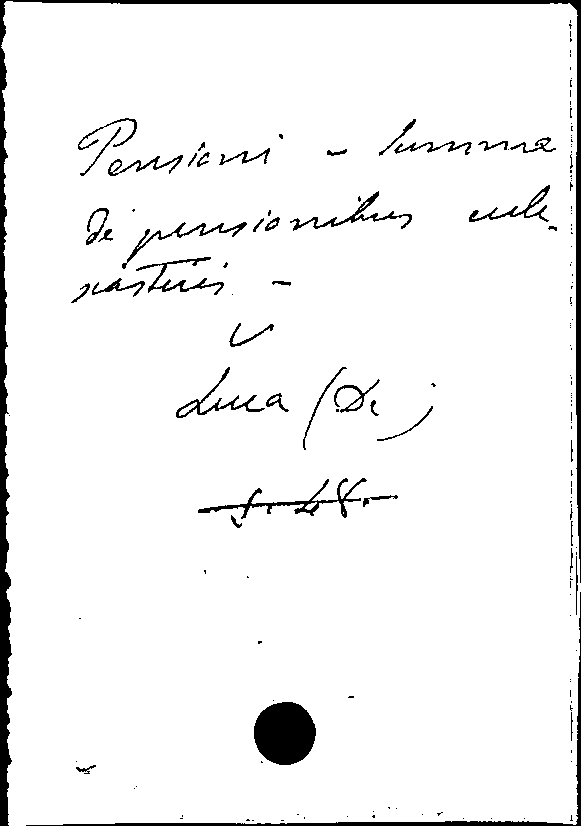 Pensioni - Summa
de pensionibus eccle-
siasticis -
V
Luca (De)